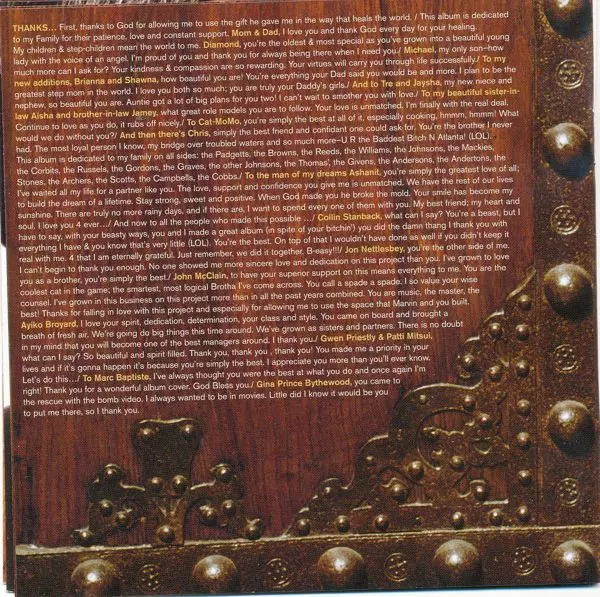 THANKS... First, thanks to God for allowing me to use the gift he gave me in the way that heals the world. / This album is dedicated
to my Family for their patience, love and constant support. Mom & Dad, I love you and thank God every day for your healing.
My children & step-children mean the world to me. Diamond, you're the oldest & most special as you've grown into a beautiful young
lady with the voice of an angel. I'm proud of you and thank you for always being there when I need you./ Michael, my only son–how
much more can I ask for? Your kindness & compassion are so rewarding. Your virtues will carry you through life successfully./ To my
new additions, Brianna and Shawna, how beautiful you are! You're everything your Dad said you would be and more. I plan to be the
greatest step mom in the world. I love you both so much; you are truly your Daddy's girls./ And to Tre and Jaysha, my new niece and
nephew, so beautiful you are. Auntie got a lot of big plans for you two! I can't wait to smother you with love./ To my beautiful sister-in-
law Aisha and brother-in-law Jamey, what great role models you are to follow. Your love is unmatched. I'm finally with the real deal.
Continue to love as you do, it rubs off nicely./ To Cat-MoMo, you're simply the best at all of it, especially cooking, hmmm, hmmm! What
would we do without you?/ And then there's Chris, simply the best friend and confidant one could ask for. You're the brother I never
had. The most loyal person I know, my bridge over troubled waters and so much more–U R the Baddest Bitch N Atlanta! (LOL)...
This album is dedicated to my family on all sides: the Padgetts, the Browns, the Reeds, the Williams, the Johnsons, the Mackies,
the Corbits, the Russels, the Gordons, the Graves, the other Johnsons, the Thomas', the Givens, the Andersons, the Andertons, the
Stones, the Archers, the Scotts, the Campbells, the Cobbs./ To the man of my dreams Ashanit, you're simply the greatest love of all;
I've waited all my life for a partner like you. The love, support and confidence you give me is unmatched. We have the rest of our lives
to build the dream of a lifetime. Stay strong, sweet and positive. When God made you he broke the mold. Your smile has become my
sunshine. There are truly no more rainy days, and if there are, I want to spend every one of them with you. My best friend; my heart and
soul. I love you 4 ever.../ And now to all the people who made this possible .../ Collin Stanback, what can I say? You're a beast, but I
have to say, with your beasty ways, you and I made a great album (in spite of your bitchin') you did the damn thang I thank you with
everything I have & you know that's very little (LOL). You're the best. On top of that I wouldn't have done as well if you didn't keep it
real with me. 4 that I am eternally grateful. Just remember, we did it together. B-easy!!!/ Jon Nettlesbey, you're the other side of me.
I can't begin to thank you enough. No one showed me more sincere love and dedication on this project than you. I've grown to love
you as a brother, you're simply the best./ John McClain, to have your superior support on this means everything to me. You are the
coolest cat in the game; the smartest, most logical Brotha I've come across. You call a spade a spade. I so value your wise
counsel. I've grown in this business on this project more than in all the past years combined. You are music, the master, the
best! Thanks for falling in love with this project and especially for allowing me to use the space that Marvin and you built.
Ayiko Broyard, I love your spirit, dedication, determination, your class and style. You came on board and brought a
breath of fresh air. We're going do big things this time around. We've grown as sisters and partners. There is no doubt
in my mind that you will become one of the best managers around. I thank you./ Gwen Priestly & Patti Mitsui,
what can I say? So beautiful and spirit filled. Thank you, thank you , thank you! You made me a priority in your
lives and if it's gonna happen it's because you're simply the best. I appreciate you more than you'll ever know.
Let's do this.../ To Marc Baptiste, I've always thought you were the best at what you do and once again I'm
right! Thank you for a wonderful album cover. God Bless you./ Gina Prince Bythewood, you came to
the rescue with the bomb video. I always wanted to be in movies. Little did I know it would be you
to put me there, so I thank you.